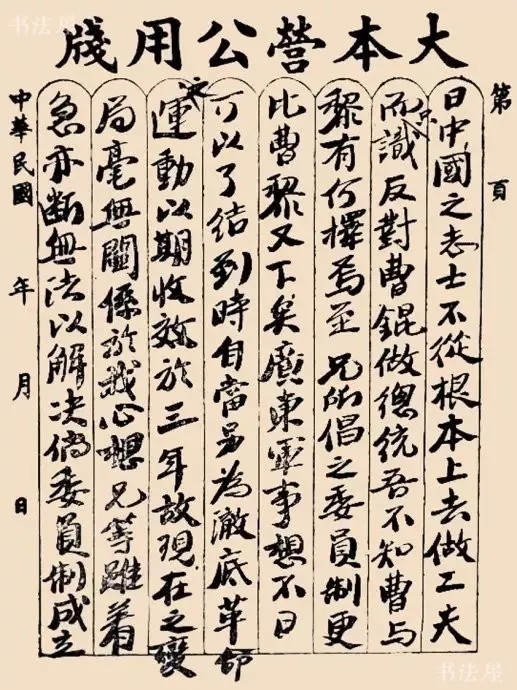 大本營公用牋
第 頁
日中國之志士不從根本上去做工夫
而只識反對曹錕做總統吾不知曹與
黎有何擇焉至兄所倡之委員制更
比曹黎又下矣廣東軍事想不日
可以了結到時自當另為澈底革命
之運動以期收效於三年故現在之變
局毫無關係於我心想兄等雖着
急亦斷無法以解决倘委員制成立
中華民國 年 月 日
书法屋
书法屋